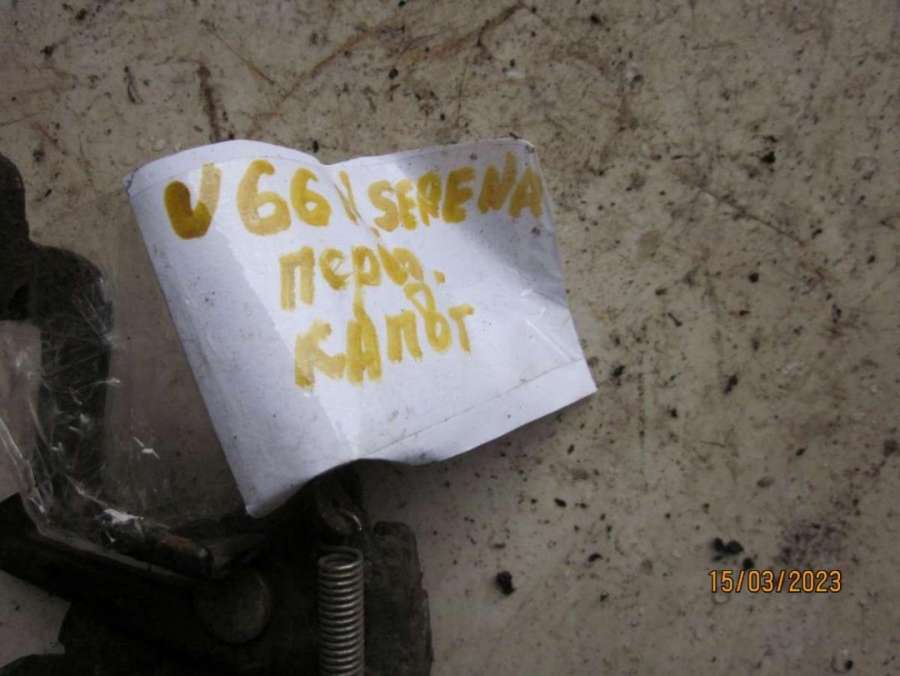 U 66 \ SERENA
перед.
КАПОТ
15/03/2023